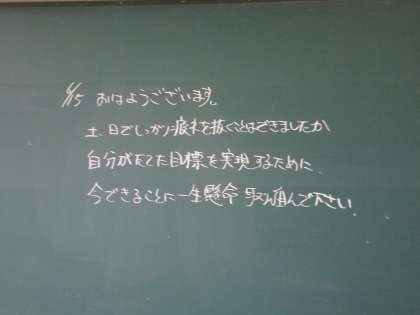 6/15 おはようございます。
土、日でしっかり疲れを抜くことはできましたか
自分がたてた目標を実現するために
今できることに一生懸命取り組んで下さい